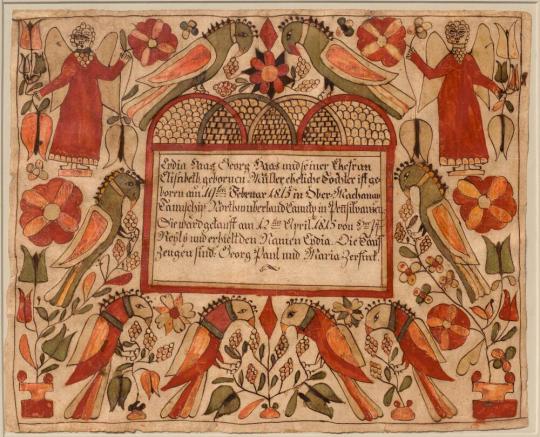 Lydia Haas Georg Haas und seiner Ehefrau
Elisabeth gebornen Miller eheliche Tochter ist ge-
boren am 19ten Februar 1815 in Ober-Machanay
Taunschip Northumberland Caunty in Pensilvanien.
Sie ward getauft am 12ten April 1815 von
und erhielt den Namen Lydia. Die Tauf
Zeugen sind. Georg Paul und Maria